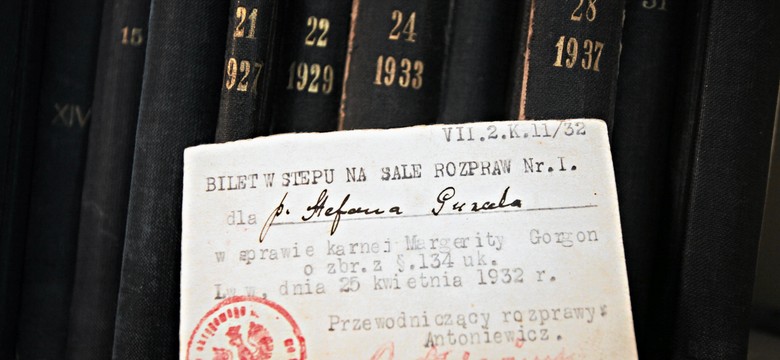 XIV
15
21
927
22
1929
24
1933
28
1937
31
VII.2.K.11/32
BILET W STEPU NA SALE ROZPRAW Nr.I.
dla p. Stefana
w sprawie karnej Margerity Gorgon
o zbr.z §.134 uk.
Lwów, dnia 25 kwietnia 1932 r.
Przewodniczący rozprawy:
Antoniewicz.